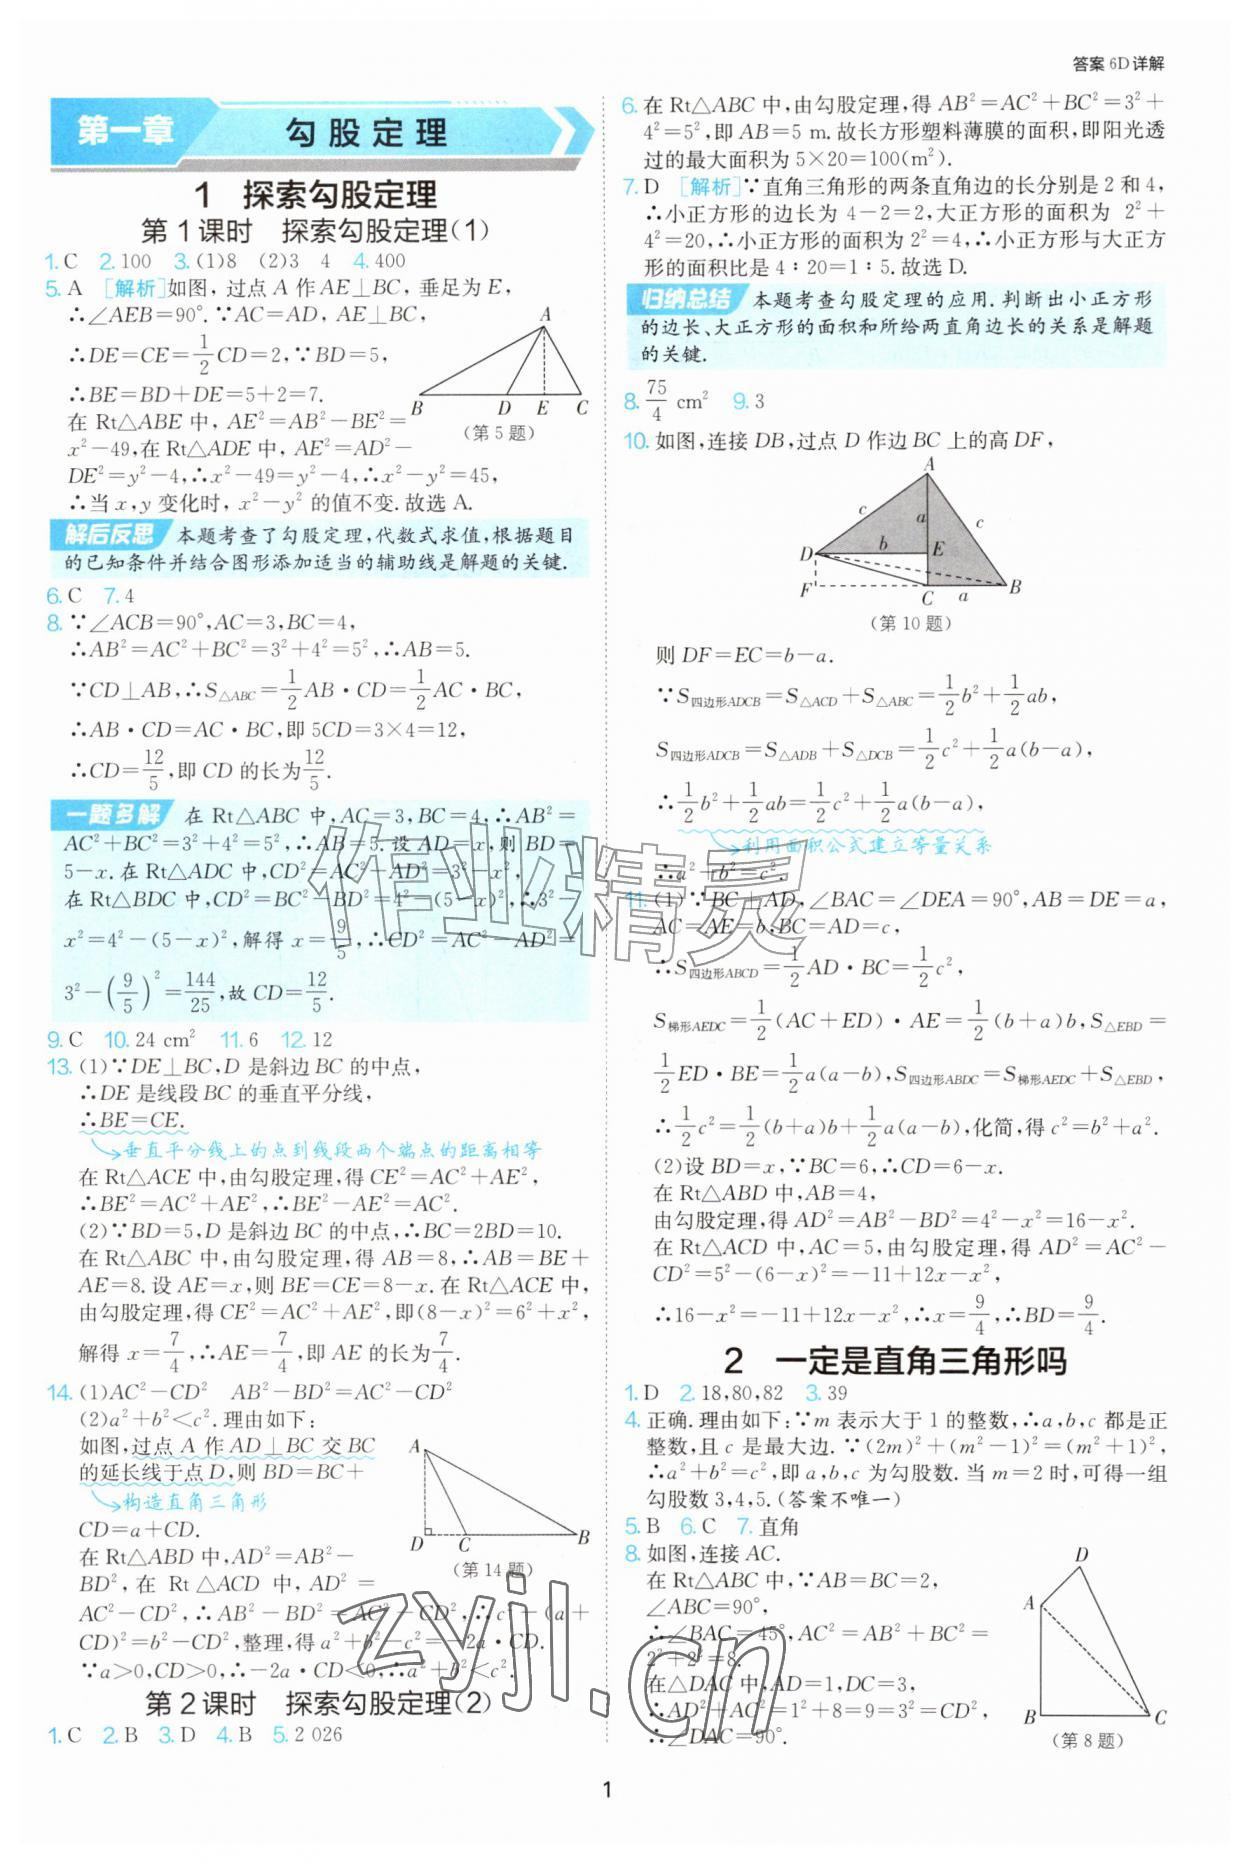 答案 6D 详解
第一章 勾股定理
1 探索勾股定理
第1课时 探索勾股定理(1)
1. C 2. 100 3. (1)8 (2)3 4 4. 400
5. A [解析]如图,过点A作AE⊥BC,垂足为E,
∴∠AEB=90°.∵AC=AD,AE⊥BC,
∴DE=CE=1/2CD=2,∵BD=5,
∴BE=BD+DE=5+2=7.
在Rt△ABE中,AE²=AB²-BE²=
x²-49,在Rt△ADE中,AE²=AD²-
DE²=y²-4,∴x²-49=y²-4,∴x²-y²=45,
∴当x,y变化时,x²-y²的值不变.故选A.
A
B D E C
(第5题)
解后反思 本题考查了勾股定理,代数式求值,根据题目
的已知条件并结合图形添加适当的辅助线是解题的关键.
6. C 7. 4
8. ∵∠ACB=90°,AC=3,BC=4,
∴AB²=AC²+BC²=3²+4²=5²,∴AB=5.
∵CD⊥AB,∴S△ABC=1/2AB·CD=1/2AC·BC,
∴AB·CD=AC·BC,即5CD=3×4=12,
∴CD=12/5,即CD的长为12/5.
一题多解 在Rt△ABC中,AC=3,BC=4,∴AB²=
AC²+BC²=3²+4²=5²,∴AB=5.设AD=x,则BD=
5-x.在Rt△ADC中,CD²=AC²-AD²=3²-x²,
在Rt△BDC中,CD²=BC²-BD²=4²-(5-x)²,∴3²-
x²=4²-(5-x)²,解得x=9/5,∴CD²=AC²-AD²=
3²-(9/5)²=144/25,故CD=12/5.
9. C 10. 24 cm² 11. 6 12. 12
13. (1)∵DE⊥BC,D是斜边BC的中点,
∴DE是线段BC的垂直平分线,
∴BE=CE.
垂直平分线上的点到线段两个端点的距离相等
在Rt△ACE中,由勾股定理,得CE²=AC²+AE²,
∴BE²=AC²+AE²,∴BE²-AE²=AC².
(2)∵BD=5,D是斜边BC的中点,∴BC=2BD=10.
在Rt△ABC中,由勾股定理,得AB=8,∴AB=BE+
AE=8.设AE=x,则BE=CE=8-x.在Rt△ACE中,
由勾股定理,得CE²=AC²+AE²,即(8-x)²=6²+x²,
解得x=7/4,∴AE=7/4,即AE的长为7/4.
14. (1)AC²-CD² AB²-BD²=AC²-CD²
(2)a²+b²<c².理由如下:
如图,过点A作AD⊥BC交BC
的延长线于点D,则BD=BC+
构造直角三角形
CD=a+CD.
在Rt△ABD中,AD²=AB²-
BD²,在Rt△ACD中,AD²=
AC²-CD²,∴AB²-BD²=AC²-CD²,∴c²-(a+
CD)²=b²-CD²,整理,得a²+b²-c²=-2a·CD.
∵a>0,CD>0,∴-2a·CD<0,∴a²+b²<c².
A
D C B
(第14题)
第2课时 探索勾股定理(2)
1. C 2. B 3. D 4. B 5. 2 026
6. 在Rt△ABC中,由勾股定理,得AB²=AC²+BC²=3²+
4²=5²,即AB=5 m.故长方形塑料薄膜的面积,即阳光透
过的最大面积为5×20=100(m²).
7. D [解析]∵直角三角形的两条直角边的长分别是2和4,
∴小正方形的边长为4-2=2,大正方形的面积为2²+
4²=20,∴小正方形的面积为2²=4,∴小正方形与大正方
形的面积比是4∶20=1∶5.故选D.
归纳总结 本题考查勾股定理的应用.判断出小正方形
的边长、大正方形的面积和所给两直角边长的关系是解题
的关键.
8. 75/4 cm² 9. 3
10. 如图,连接DB,过点D作边BC上的高DF,
A
c a c
D b E
F C a B
(第10题)
则DF=EC=b-a.
∵S四边形ADCB=S△ACD+S△ABC=1/2b²+1/2ab,
S四边形ADCB=S△ADB+S△DCB=1/2c²+1/2a(b-a),
∴1/2b²+1/2ab=1/2c²+1/2a(b-a),
利用面积公式建立等量关系
∴a²+b²=c².
11. (1)∵BC⊥AD,∠BAC=∠DEA=90°,AB=DE=a,
AC=AE=b,BC=AD=c,
∴S四边形ABCD=1/2AD·BC=1/2c²,
S梯形AEDC=1/2(AC+ED)·AE=1/2(b+a)b,S△EBD=
1/2ED·BE=1/2a(a-b),S四边形ABDC=S梯形AEDC+S△EBD,
∴1/2c²=1/2(b+a)b+1/2a(a-b),化简,得c²=b²+a².
(2)设BD=x,∵BC=6,∴CD=6-x.
在Rt△ABD中,AB=4,
由勾股定理,得AD²=AB²-BD²=4²-x²=16-x².
在Rt△ACD中,AC=5,由勾股定理,得AD²=AC²-
CD²=5²-(6-x)²=-11+12x-x²,
∴16-x²=-11+12x-x²,∴x=9/4,∴BD=9/4.
2 一定是直角三角形吗
1. D 2. 18,80,82 3. 39
4. 正确.理由如下:∵m表示大于1的整数,∴a,b,c都是正
整数,且c是最大边.∵(2m)²+(m²-1)²=(m²+1)²,
∴a²+b²=c²,即a,b,c为勾股数.当m=2时,可得一组
勾股数3,4,5.(答案不唯一)
5. B 6. C 7. 直角
8. 如图,连接AC.
在Rt△ABC中,∵AB=BC=2,
∠ABC=90°,
∴∠BAC=45°,AC²=AB²+BC²=
2²+2²=8.
在△DAC中,AD=1,DC=3,
∴AD²+AC²=1²+8=9=3²=CD²,
∴∠DAC=90°.
D
A
B C
(第8题)
作业精灵
zyjl.cn
1